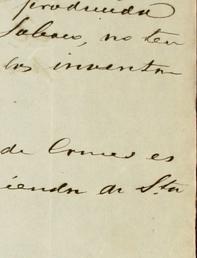 producida
Sabeo, no ten
los inventa
de Comer es
ienda de Sta